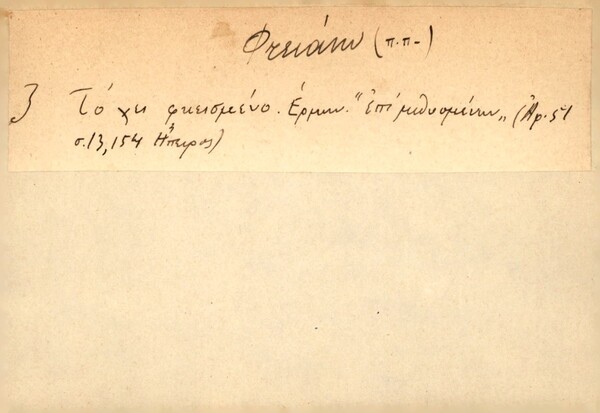 Φτειάνω (π.π-)
3 Τό χει φκεισμένο. Ερμην. "ἐπί μεθυσμένων„ (Ἀρ. 51
σ. 13, 154 Ἤπειρος)